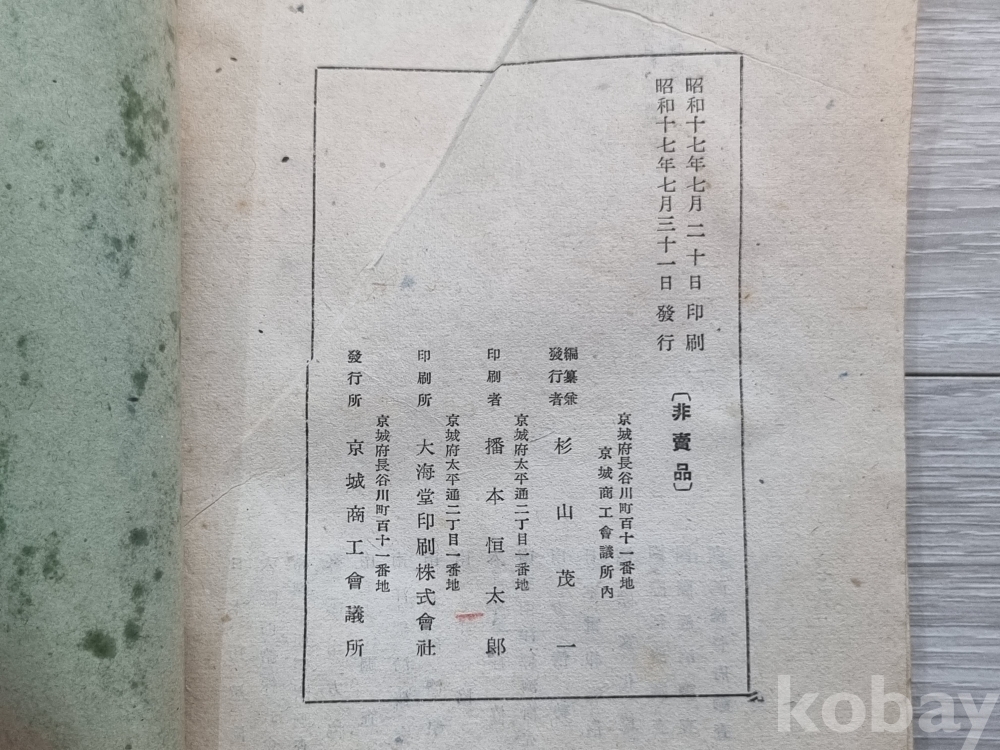 昭和十七年七月二十日印刷
昭和十七年七月三十一日發行
〔非賣品〕
京城府長谷川町百十一番地
京城商工會議所內
編纂兼
發行者 杉山茂一
京城府太平通二丁目一番地
印刷者 播本恒太郞
京城府太平通二丁目一番地
印刷所 大海堂印刷株式會社
京城府長谷川町百十一番地
發行所 京城商工會議所
kobay